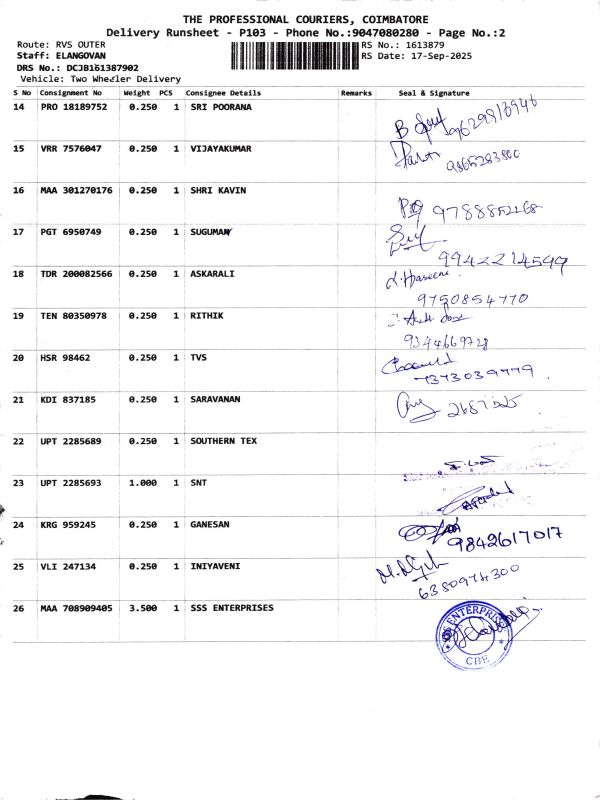 THE PROFESSIONAL COURIERS, COIMBATORE
Delivery Runsheet - P103 - Phone No.:9047080280 - Page No.:2
Route: RVS OUTER
RS No.: 1613879
Staff: ELANGOVAN
RS Date: 17-Sep-2025
DRS No.: DCJB161387902
Vehicle: Two Wheeler Delivery
S No Consignment No Weight PCS Consignee Details Remarks Seal & Signature
14 PRO 18189752 0.250 1 SRI POORANA
15 VRR 7576047 0.250 1 VIJAYAKUMAR
9865283800
16 MAA 301270176 0.250 1 SHRI KAVIN
9788852168
17 PGT 6950749 0.250 1 SUGUMAR
9942214599
18 TDR 200082566 0.250 1 ASKARALI
9750854770
19 TEN 80350978 0.250 1 RITHIK
9344669728
20 HSR 98462 0.250 1 TVS
7373039779
21 KDI 837185 0.250 1 SARAVANAN
22 UPT 2285689 0.250 1 SOUTHERN TEX
23 UPT 2285693 1.000 1 SNT
24 KRG 959245 0.250 1 GANESAN
9842617017
25 VLI 247134 0.250 1 INIYAVENI
6380974300
26 MAA 708909405 3.500 1 SSS ENTERPRISES
ENTERPRISES
CBE